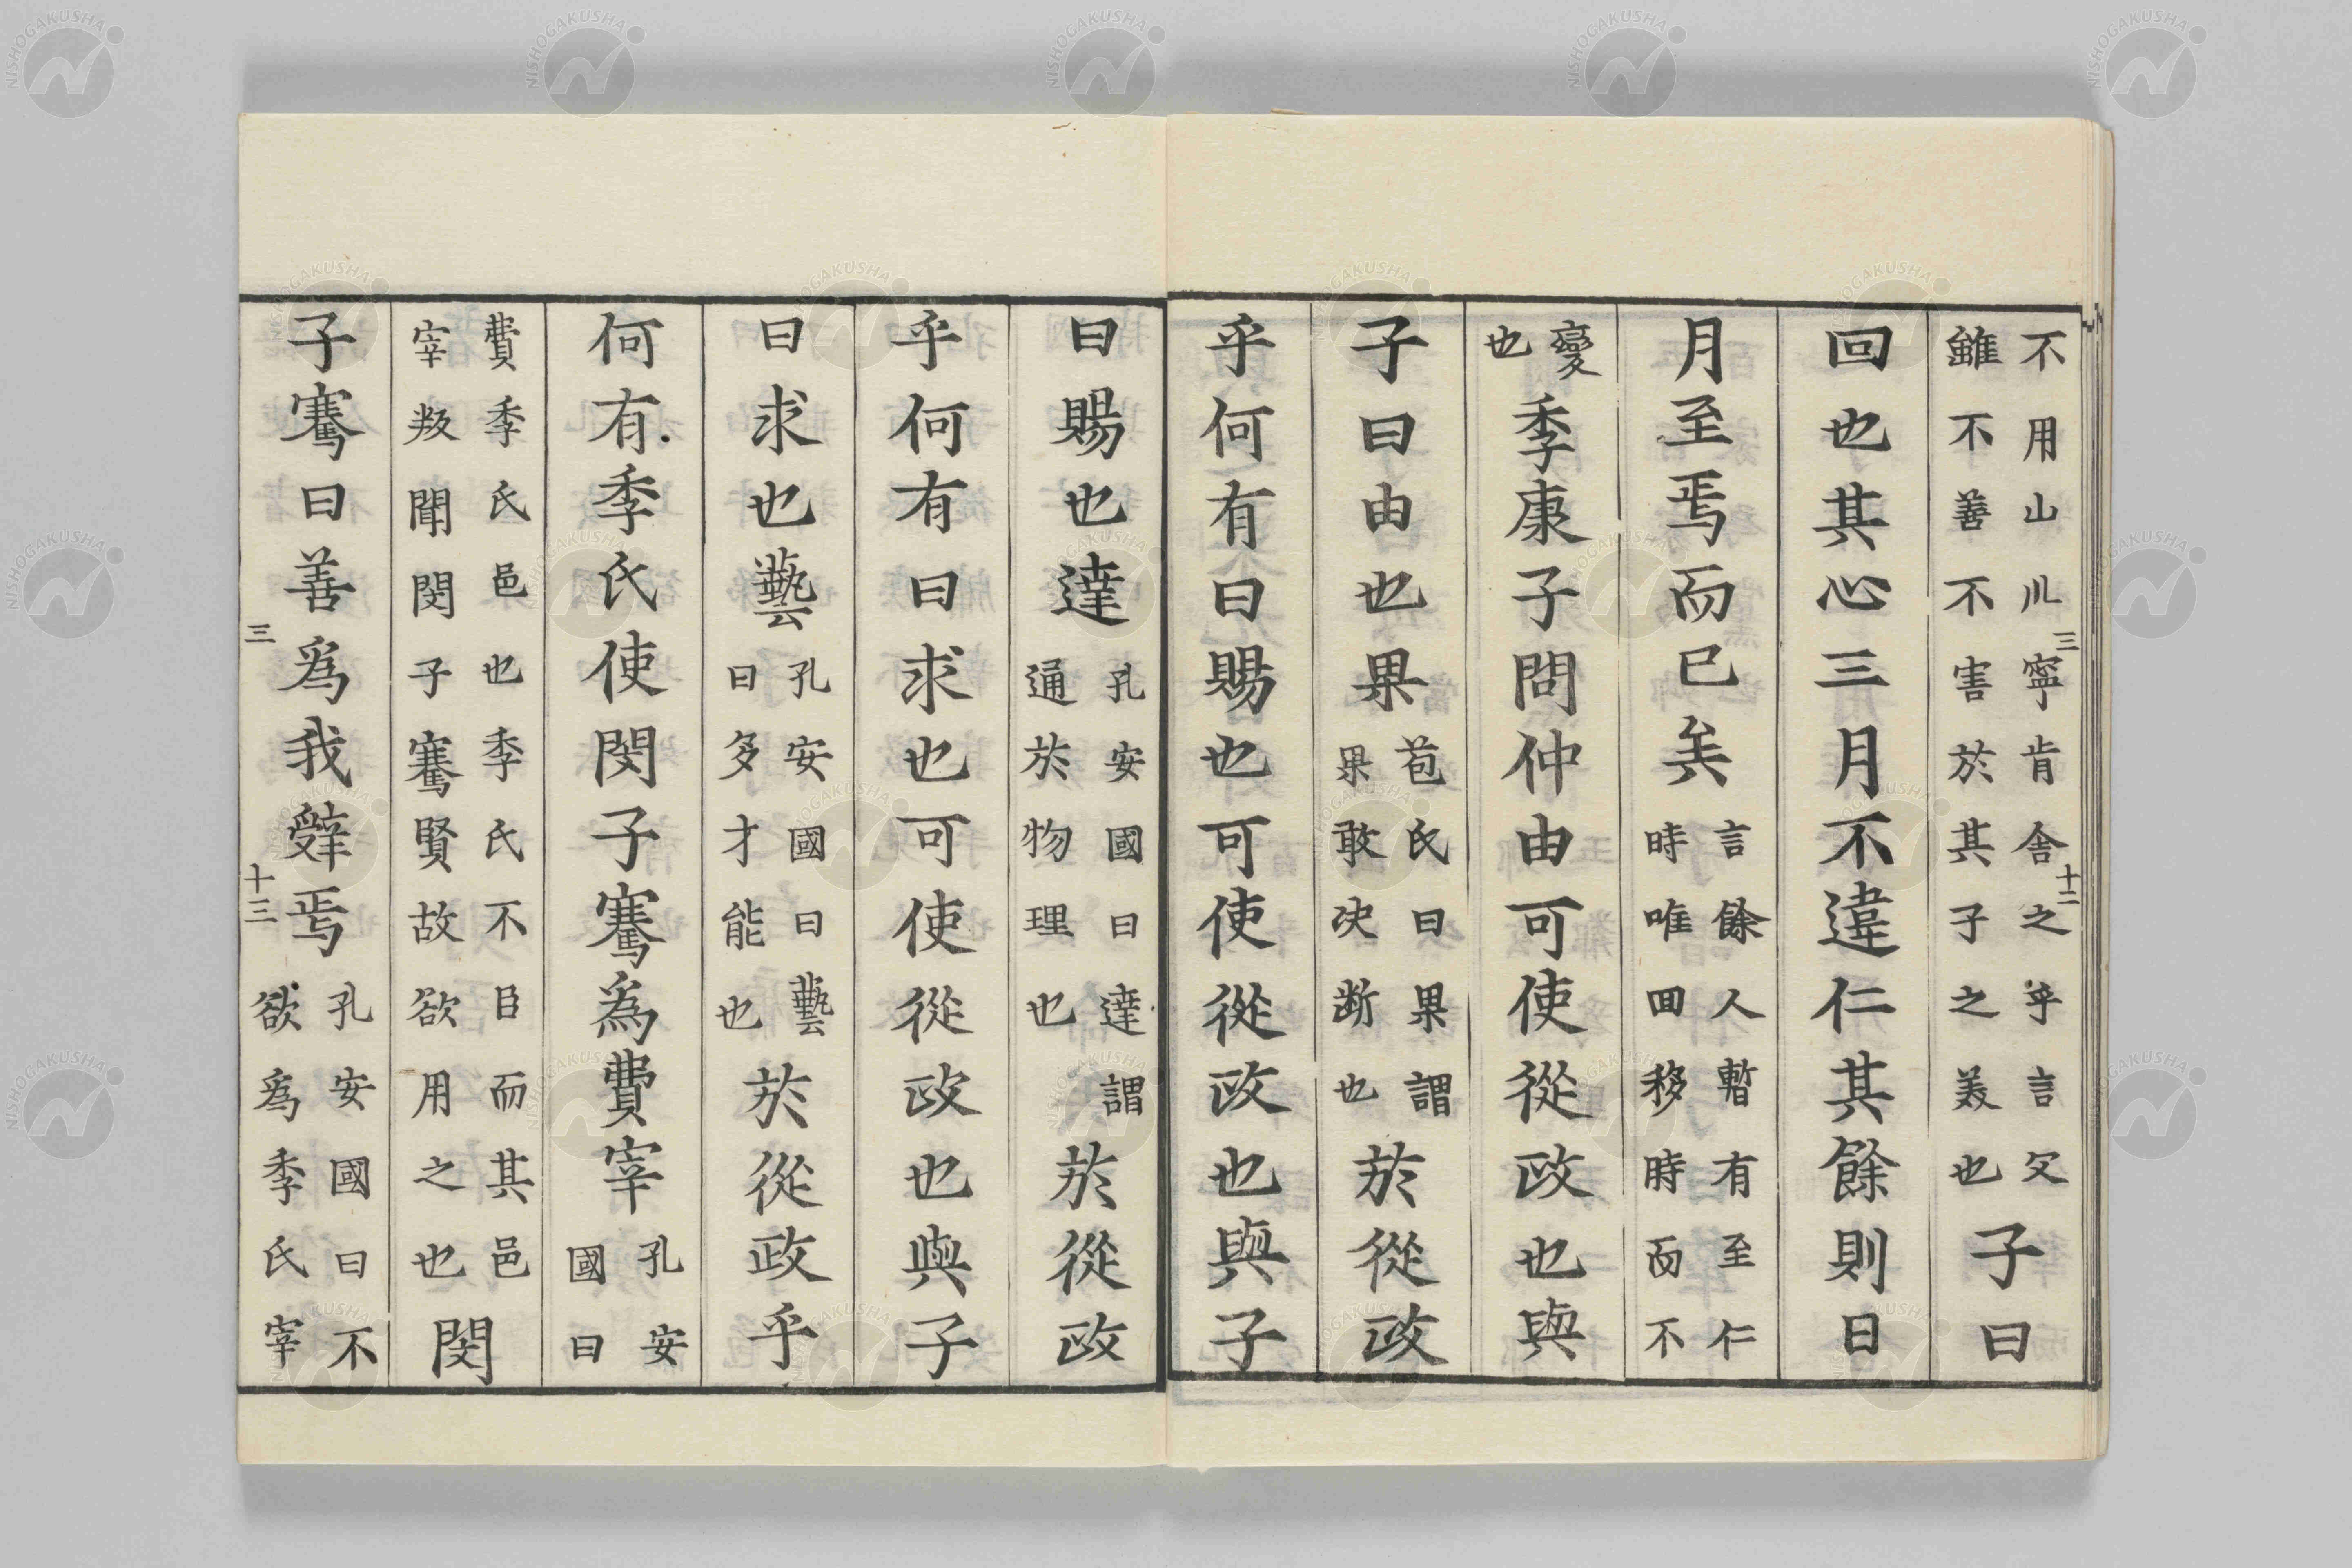 不用山川寧肯舍之乎言父
雖不善不害於其子之美也
子曰
回也其心三月不違仁其餘則日
月至焉而已矣
言餘人暫有至仁
時唯回移時而不
變
也
季康子問仲由可使從政也與
子曰由也果
苞氏曰果謂
果敢決断也
於從政
乎何有曰賜也可使從政也與子
曰賜也達
孔安國曰達謂
通於物理也
於從政
乎何有曰求也可使從政也與子
曰求也藝
孔安國曰藝
曰多才能也
於從政乎
何有季氏使閔子騫爲費宰
孔安
國曰
費季氏邑也季氏不臣而其邑
宰叛聞閔子騫賢故欲用之也
閔
子騫曰善爲我辤焉
孔安國曰不
欲爲季氏宰
三
十二
三
十三
NISHOGAKUSHA